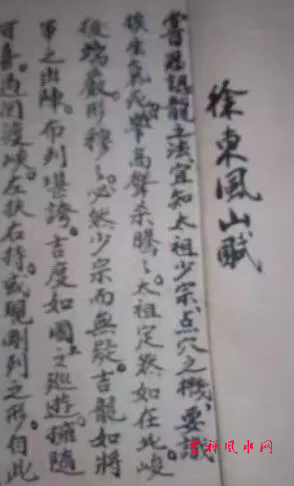 徐東風山賦
嘗思認龍之法宜知太祖少宗点穴之機要識
生氣死。高聳杀騰〻。太祖定然如在此峻
後端嚴。形穆〻。必然少宗而無疑。吉龍如將
軍之出陣。布列堪誇。吉度如國王之巡遊。擁隨
可喜。過關渡峽。左扶右持。或現列之形。自此
吉祥风水网